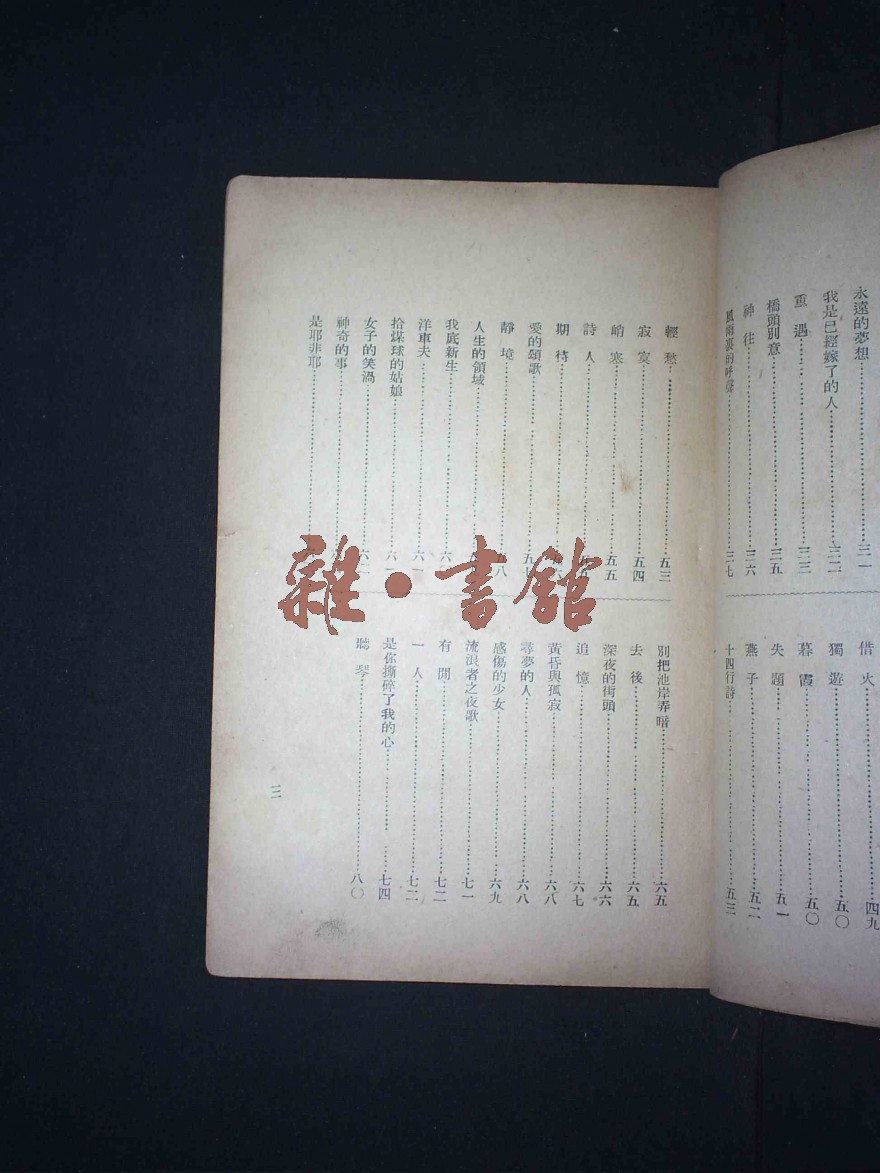 永遠的夢想……三一
我是已經嫁了的人……三二
重遇……三三
橋頭別意……三五
神往……三六
風雨裏的呼聲……三七
借火……四九
獨遊……五〇
暮靄……五〇
失題……五一
燕子……五二
十四行詩……五三
輕愁……五三
寂寞……五四
峭寒……五五
詩人……五五
期待……
愛的頌歌……五七
靜境……五八
人生的領域……
我底新生……六〇
洋車夫……六一
拾煤球的姑娘……六一
女子的笑渦……六二
神奇的事……
是耶非耶……
別把池岸弄暗……六五
去後……六五
深夜的街頭……六六
追憶……六七
黃昏與孤寂……六八
尋夢的人……六八
感傷的少女……六九
流浪者之夜歌……七一
有閒……七二
一人……七二
是你撕碎了我的心……七四
聽琴……八〇
三
雜·書館